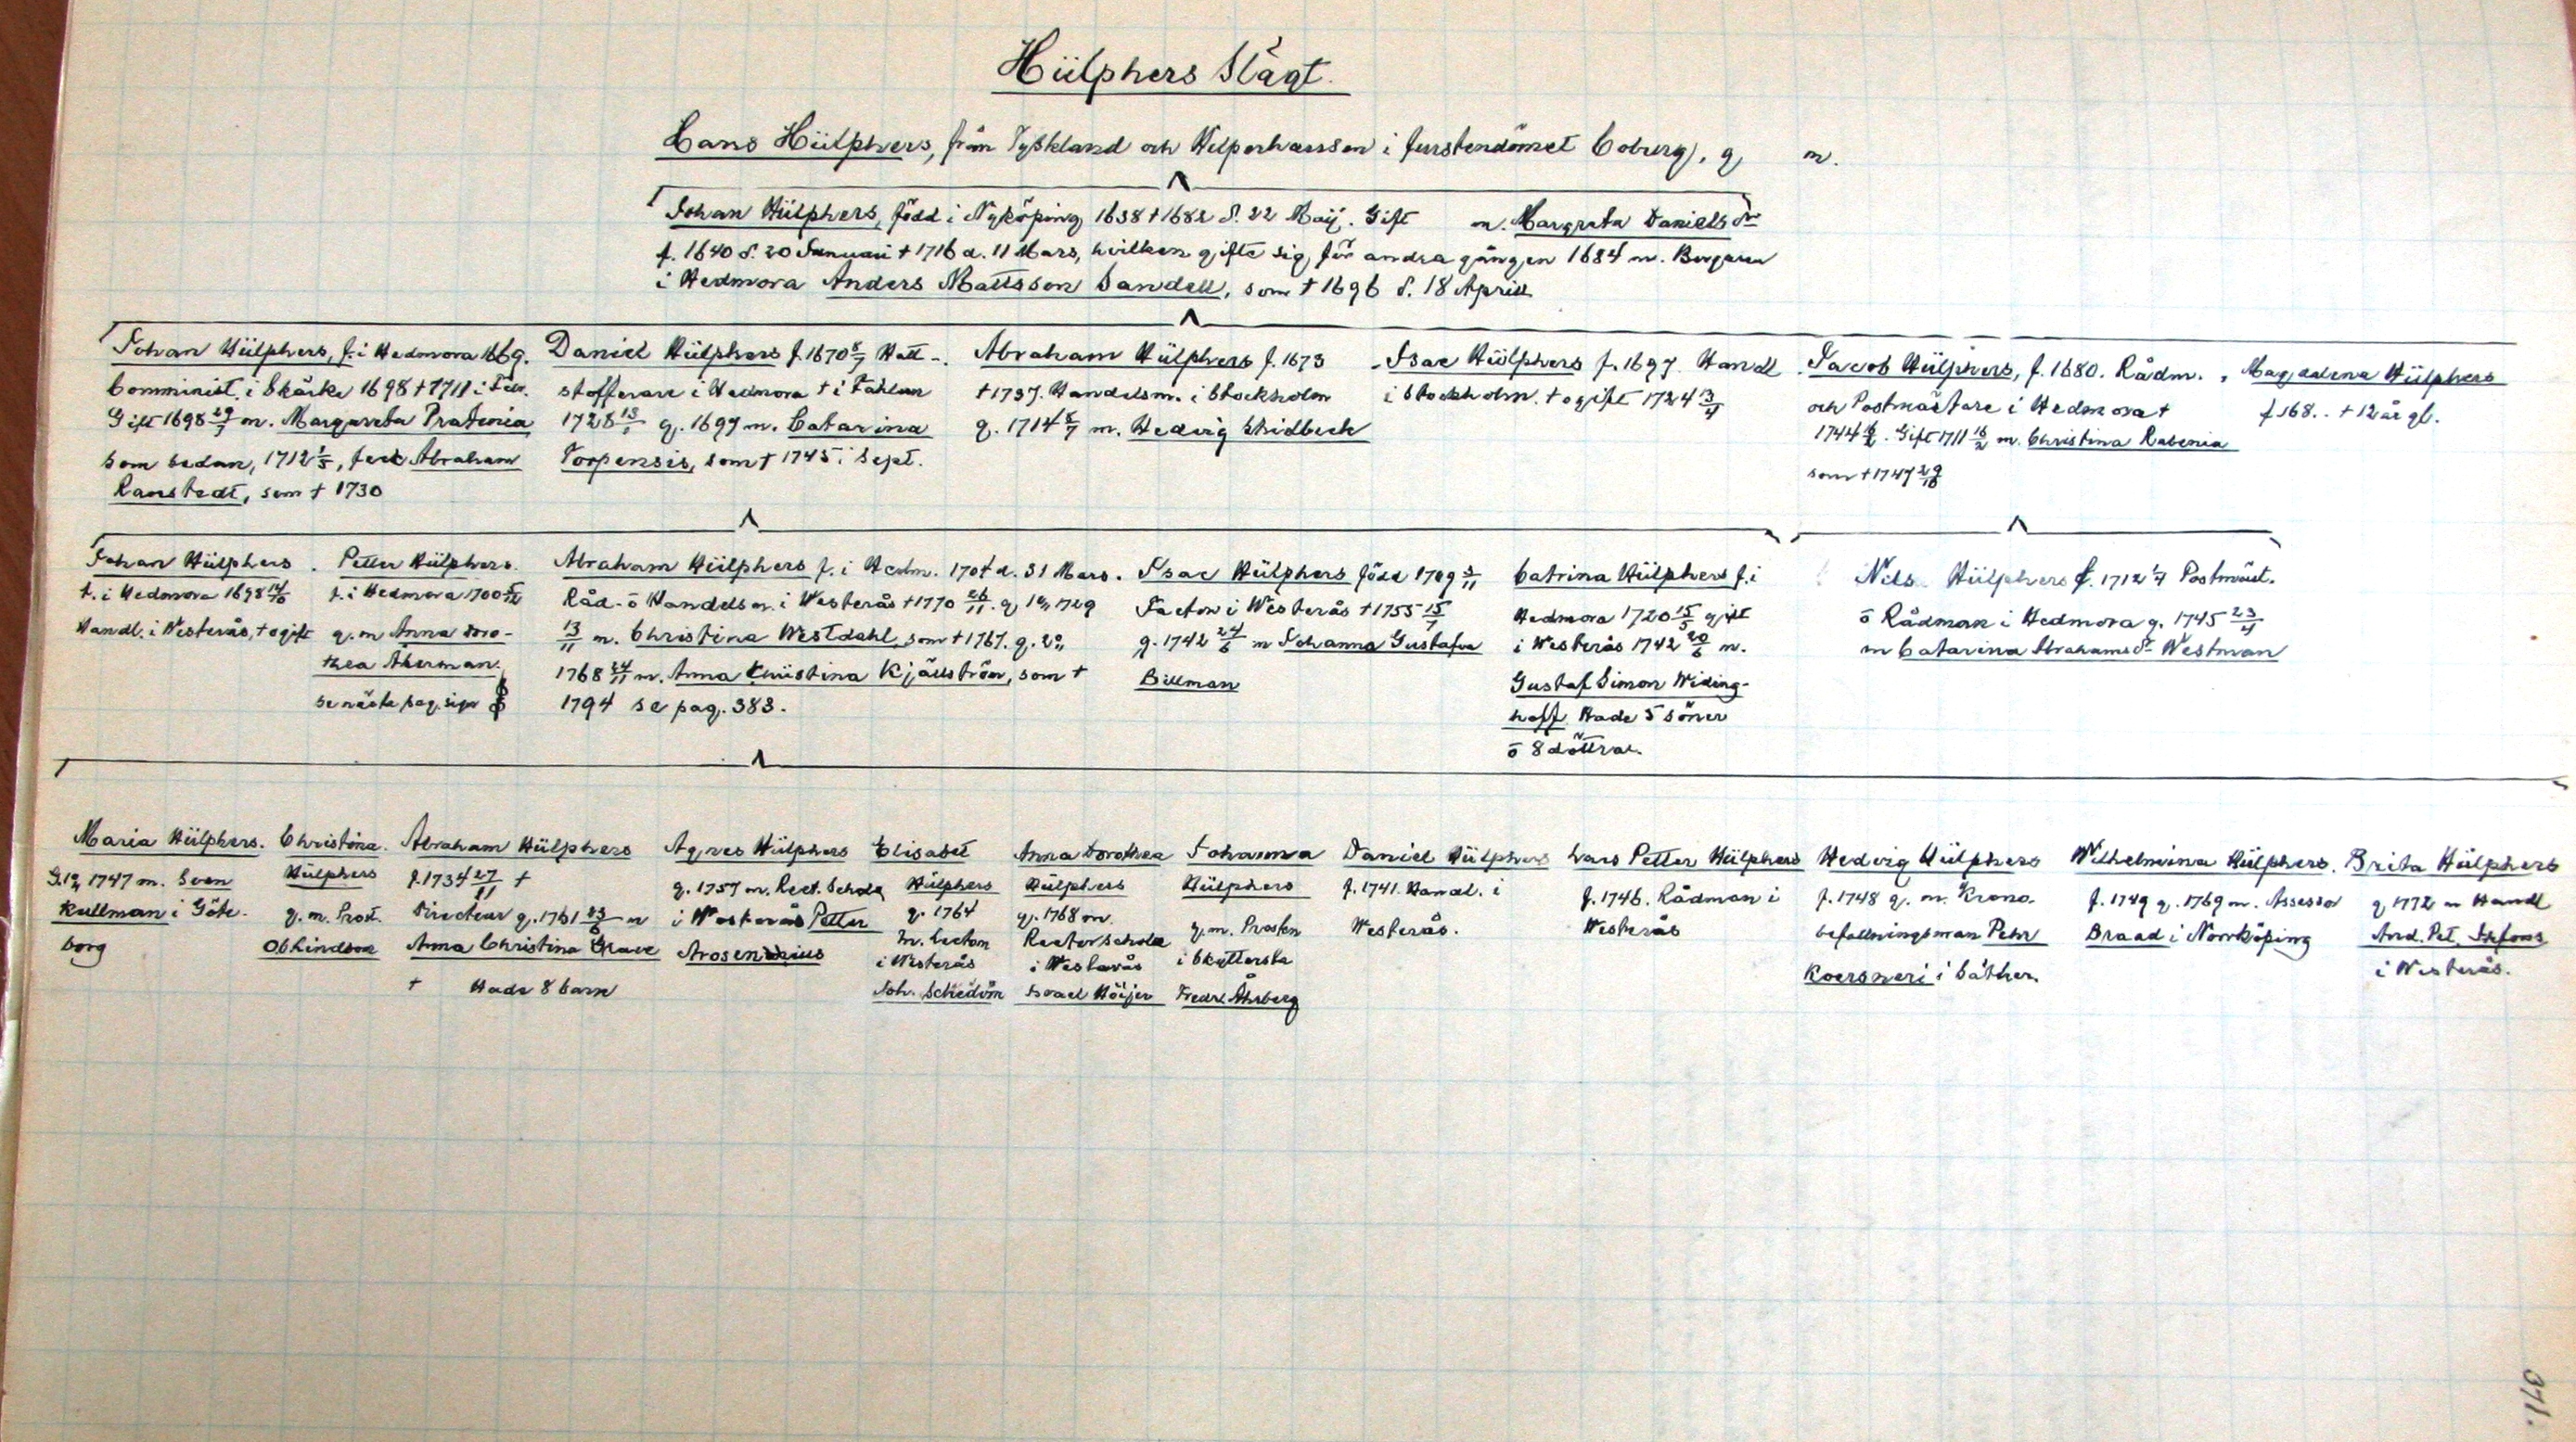 Hülphers Slägt.
Hans Hülphers, från Tyskland och Welperhaussen i furstendömet Coburg), g. m.
Johan Hülphers, född i Nyköping 1638 † 1682 d. 22 Maij. Gift m. Margreta Daniels dr
f. 1640 d. 20 Januari † 1716 d. 11 Mars, hvilken gifte sig för andra gången 1684 m. Borgaren
i Hedmora Anders Mattsson Sandell, som † 1696 d. 18 April
Johan Hülphers, f. i Hedmora 1669.
Comminist. i Skärke 1698 † 1711 i Febr.
Gift 1698 29/7 m. Margareta Pratenia
som sedan, 1712 1/5, feck Abraham
Ranstedt, som † 1730
Daniel Hülphers f. 1670 8/7 Hatt-
stofferare i Hedmora † i Fahlun
1728 13/1 g. 1697 m. Catarina
Torpensis, som † 1745 i Sept.
Abraham Hülphers f. 1673
† 1737. Handelsm. i Stockholm
g. 1714 8/7 m. Hedvig Skidbeck
Isac Hülphers f. 1697. Handl
i Stockholm. † ogift 1724 13/4
Jacob Hülphers, f. 1680. Rådm.
och Postmästare i Hedmora †
1744 16/2. Gift 1711 16/2 m. Christina Rabenia
som † 1747 29/10
Magdalena Hülphers
f 168.. † 12 år gl.
Johan Hülphers.
f. i Hedmora 1698 14/10
Handl. i Westerås, † ogift
Petter Hülphers.
f. i Hedmora 1700 5/12
g. m Anna Doro-
thea Åkerman.
se nästa pag. sign
Abraham Hülphers f. i Hedm. 1704 d. 31 Mars.
Råd- ō Handelsm. i Westerås † 1770 26/11. g 1o, 1729
13/11 m. Christina Westdahl, som † 1767. g. 2o,
1768 24/11 m. Anna Christina Kjällström, som †
1794 se pag. 383.
Isac Hülphers född 1709 3/11
Factor i Westerås † 1755 15/7
g. 1742 24/6 m Johanna Gustafva
Billman
Catrina Hülphers f. i
Hedmora 1720 15/5 gift
i Westerås 1742 20/6 m.
Gustaf Simon Widing-
hoff. Hade 5 söner
ō 8 döttrar.
Nils Hülphers f. 1712 1/7 Postmäst.
ō Rådman i Hedmora g. 1745 23/4
m Catarina Abrahams dr Westman
Maria Hülphers.
G. 1o, 1747 m. Sven
Kullman i Göte-
borg
Christina.
Hülphers
g. m. Prost.
Ol. Lindbom
Abraham Hülphers
f. 1734 27/11 †
Directeur g. 1761 23/6 m
Anna Christina Grave
† Hade 8 barn
Agnes Hülphers
g. 1757 m. Rect. Schola
i Westerås Petter
Arosenius
Elisabet
Hülphers
g. 1764
m. Lector
i Westerås
Joh. Schedvin
Anna Dorothea
Hülphers
g. 1768 m.
Rector schola
i Westerås
Israel Höijer
Johanna
Hülphers
g. m. Prosten
i Skultersta
Fredr. Åhrberg
Daniel Hülphers
f. 1741. Handl. i
Westerås.
Lars Petter Hülphers
f. 1746. Rådman i
Westerås
Hedvig Hülphers
f. 1748 g. m. Krono-
befallningsman Pehr
Koersneri i Säther.
Wilhelmina Hülphers.
f. 1749 g. 1769 m. Assessor
Braad i Norrköping
Brita Hülphers
g 1772 m Handl
And. Pet.
i Westerås.
371.